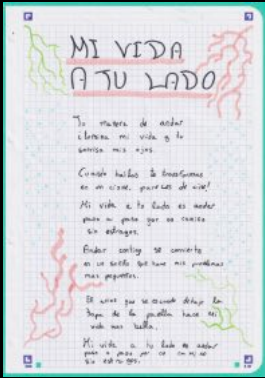 MI VIDA
A TU LADO
Tu manera de andar
ilumina mi vida y tu
sonrisa mis ojos.
Cuando bailas te transformas
en un cisne, pareces de aire!
Mi vida a tu lado es andar
paso a paso por un camino
sin estragos.
Andar contigo se convierte
en un sueño que hace mis problemas
mas pequeños.
El que se esconde debajo
de la hace mi
vida mas bella.
Mi vida a tu lado es andar
paso a paso por un camino
sin estragos.